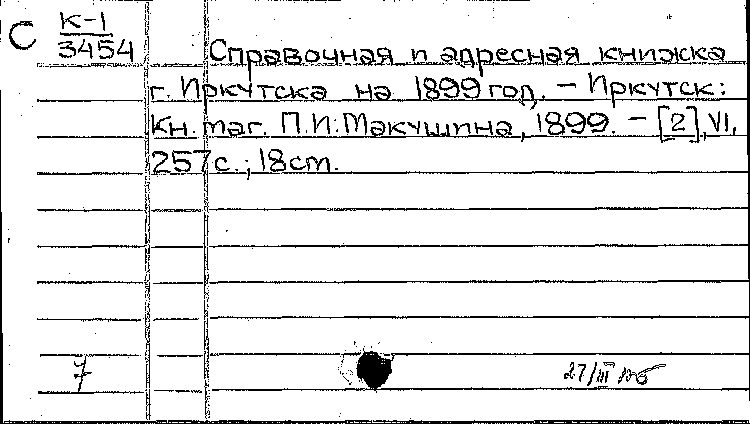 С К-1
3454
Справочная и адресная книжка
г. Иркутска на 1899 год. – Иркутск:
Кн. маг. П.И. Макушина, 1899. – [2], VI,
257 с.; 18 cm.
7
27/III